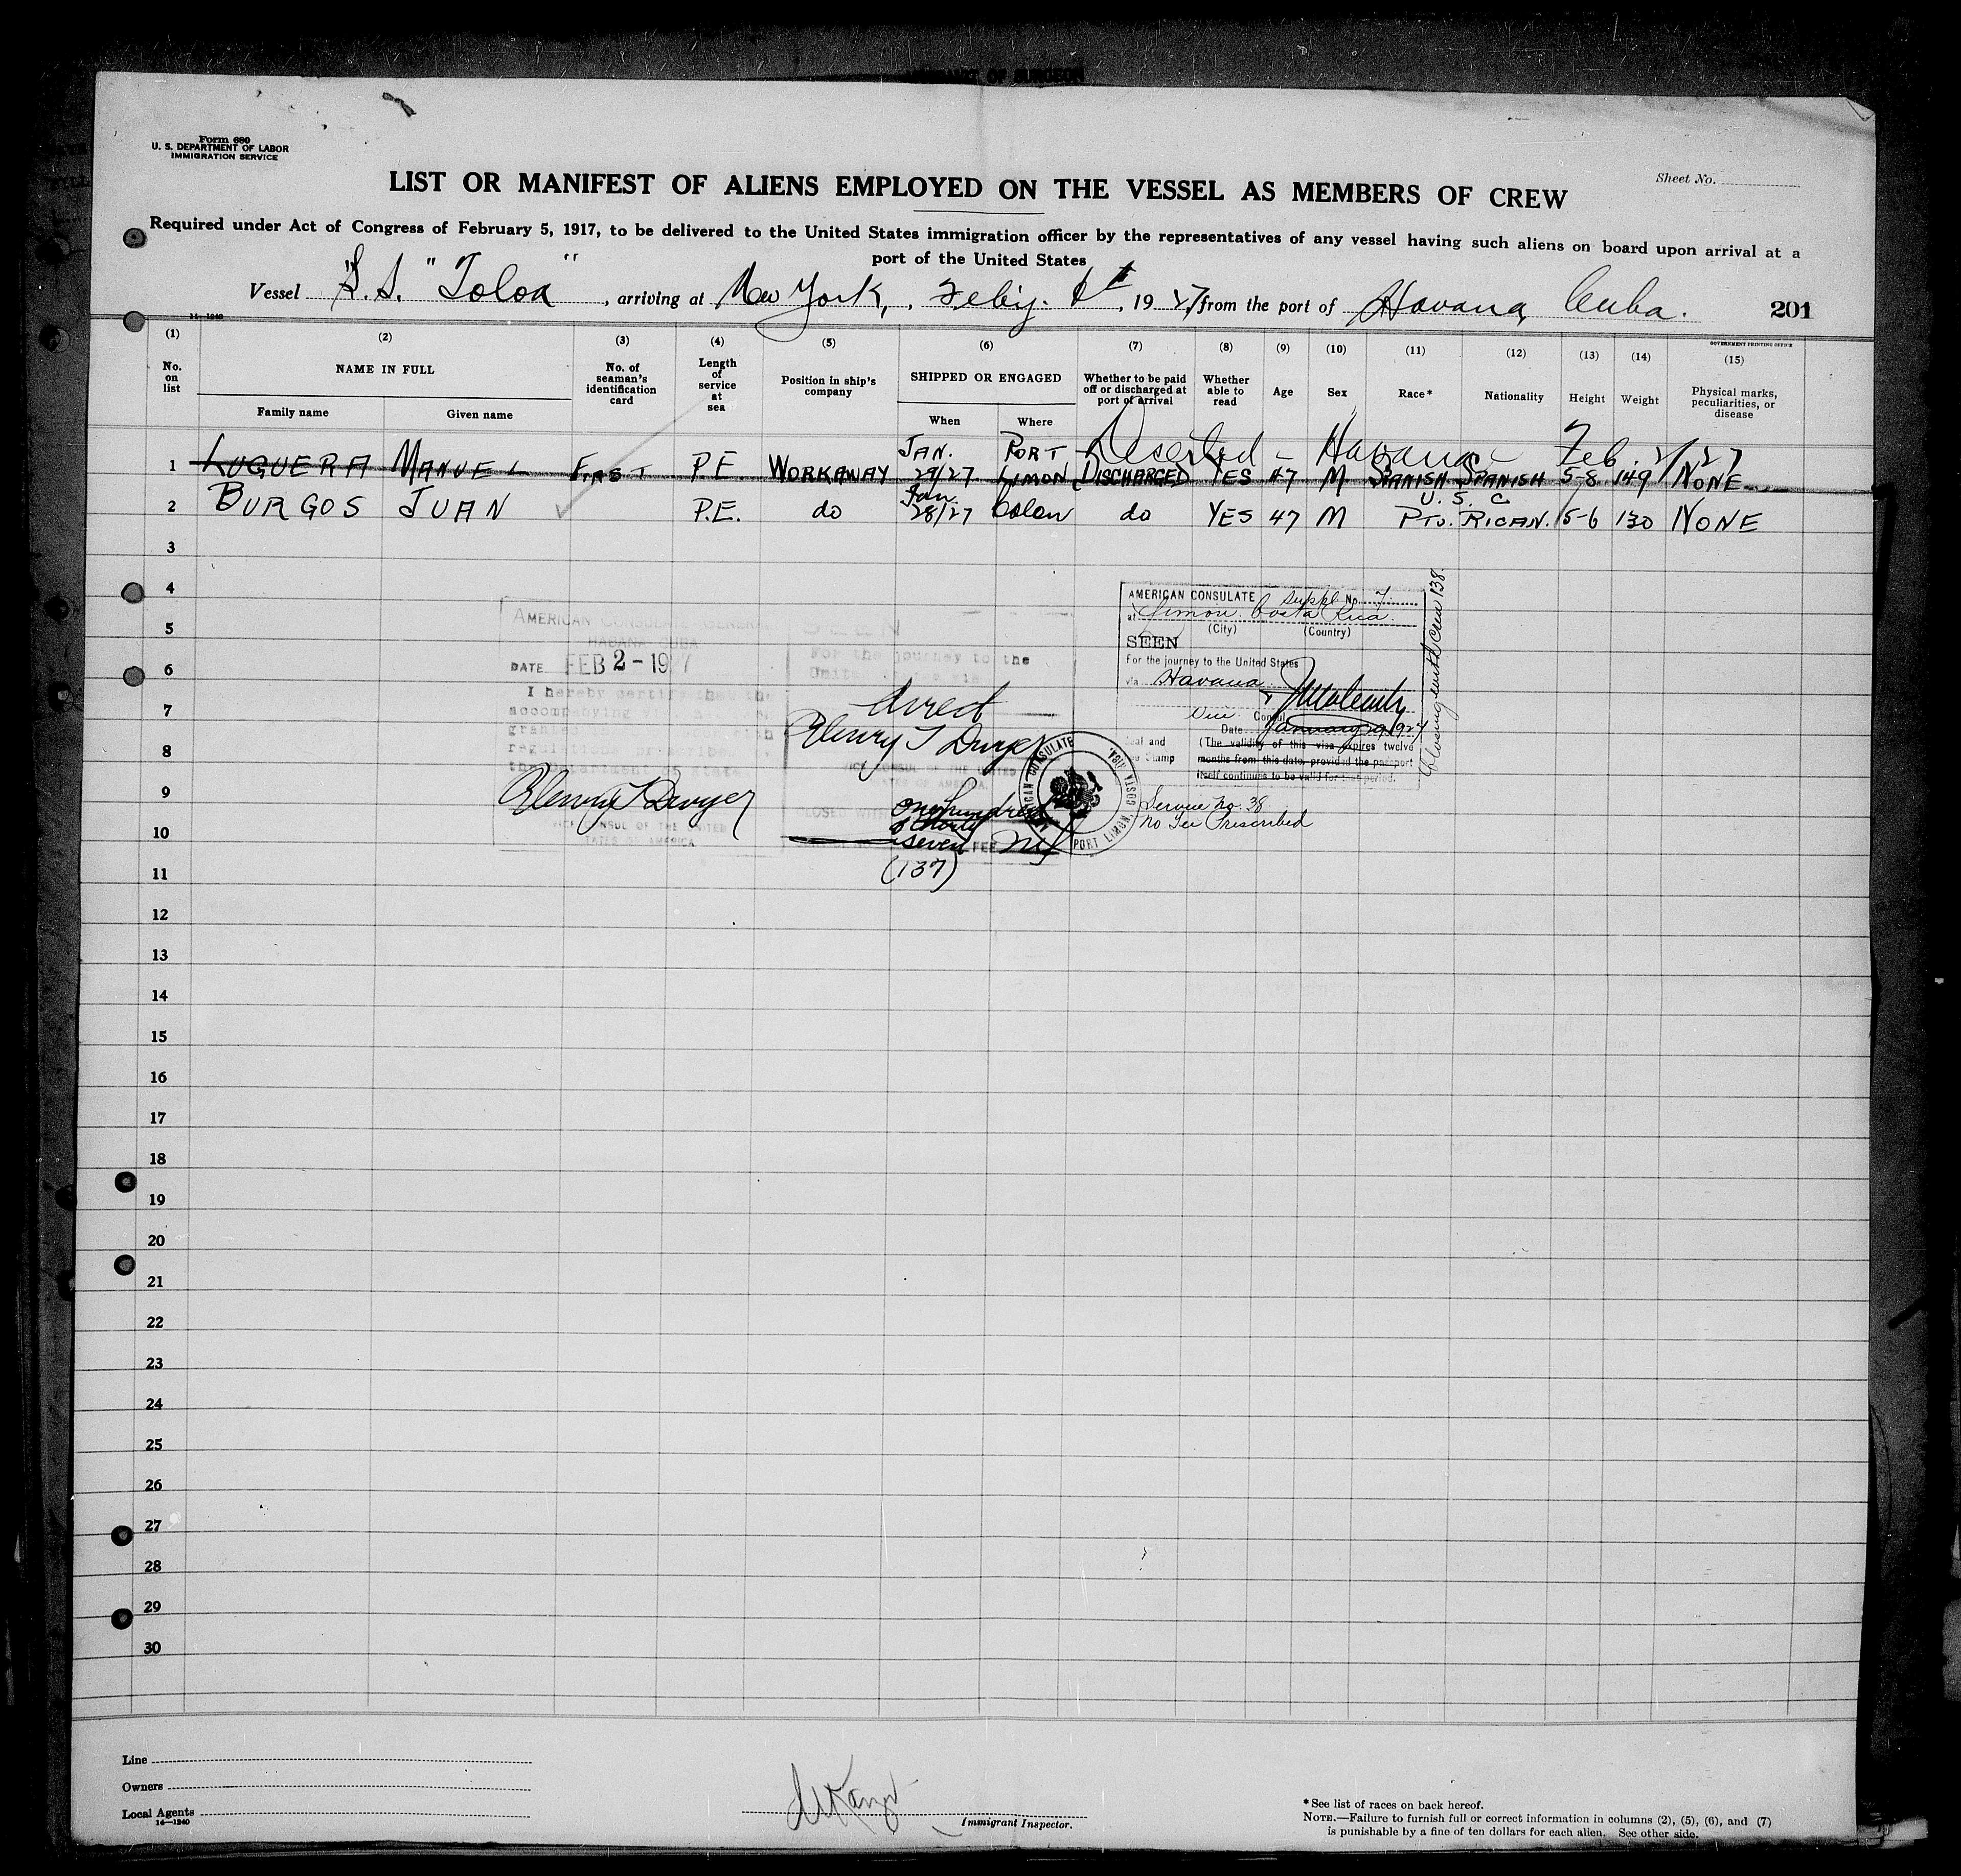 Form 680
U. S. DEPARTMENT OF LABOR
IMMIGRATION SERVICE
Sheet No.
LIST OR MANIFEST OF ALIENS EMPLOYED ON THE VESSEL AS MEMBERS OF CREW
Required under Act of Congress of February 5, 1917, to be delivered to the United States immigration officer by the representatives of any vessel having such aliens on board upon arrival at a
port of the United States
Vessel S.S. "Toloa", arriving at New York, Feby. , 1927 from the port of Havana Cuba. 201
(1) (2) (3) (4) (5) (6) (7) (8) (9) (10) (11) (12) (13) (14) (15)
GOVERNMENT PRINTING OFFICE
No. on list
NAME IN FULL
Family name Given name
No. of seaman's identification card
Length of service at sea
Position in ship's company
SHIPPED OR ENGAGED
When Where
Whether to be paid off or discharged at port of arrival
Whether able to read
Age Sex Race* Nationality Height Weight
Physical marks, peculiarities, or disease
Deserted - Havana - Feb. 2/27
1 LUGUERA MANUEL FIRST P.E. WORKAWAY JAN. 29/27 PORT LIMON DISCHARGED YES 47 M SPANISH SPANISH 5-8 149 NONE
U. S. C
2 BURGOS JUAN P.E. do Jan. 28/27 Colon do YES 47 M PTO. RICAN. 5-6 130 NONE
3
4
5
6
7
8
9
10
11
12
13
14
15
16
17
18
19
20
21
22
23
24
25
26
27
28
29
30
AMERICAN CONSULATE GENERAL
HABANA CUBA
DATE FEB 2 - 1927
I hereby certify that the
accompanying
the Department of State.
Henry T Dwyer
VICE CONSUL OF THE UNITED
STATES OF AMERICA
SEEN
For the journey to the
United States via
direct
Henry T Dwyer
VICE CONSUL OF THE UNITED
STATES OF AMERICA.
CLOSED WITH
one hundred
& thirty
seven FEE
(137)
AMERICAN CONSULATE Suppl No. 7
at Limon Costa Rica.
(City) (Country)
SEEN
For the journey to the United States
via Havana
Vice Consul
Date January 29, 1927
Seal and
Fee Stamp
(The validity of this visa expires twelve
months from this date, provided the passport
itself continues to be valid for that period.
Closing with Crew 138.
AMERICAN CONSULATE PORT LIMON, COSTA RICA.
Service No. 38
No Fee Prescribed
Line
Owners
Local Agents
14—1240
Immigrant Inspector.
*See list of races on back hereof.
NOTE.—Failure to furnish full or correct information in columns (2), (5), (6), and (7)
is punishable by a fine of ten dollars for each alien. See other side.